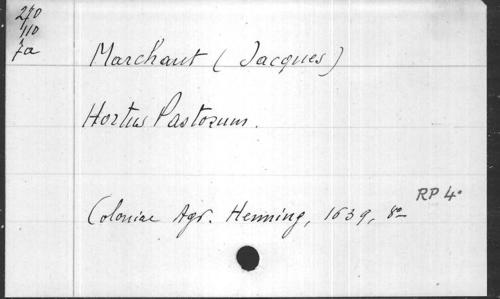 270
110
7a
Marchant (Jacques)
Hortus Pastorum.
RP 4°
Coloniae Agr. Henning, 1639, 8°